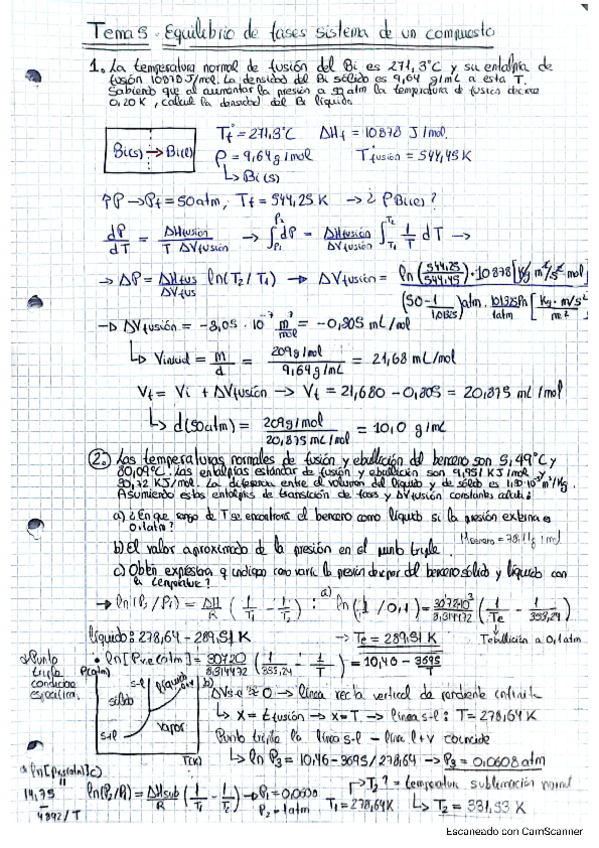 Tema 5. Equilibrio de fases sistema de un compuesto
1. La temperatura normal de fusión del Bi es 271,3°C y su entalpía de
fusión 10878 J/mol. La densidad del Bi sólido es 9,64 g/mL a esta T.
Sabiendo que al aumentar la presión a 50 atm la temperatura de fusión decrece
0,20 K, calcul la densidad del Bi líquido.
Bi(s) → Bi(l)
Tf° = 271,3°C ΔHf = 10878 J/mol.
ρ = 9,64 g/mol Tfusión = 544,45 K
↳ Bi(s)
↑P → Pf = 50 atm, Tf = 544,25 K → ¿ρ Bi(l)?
dP/dT = ΔHfusión / (T ΔVfusión) → ∫P1 P2 dP = ΔHfusión/ΔVfusión ∫T1 T2 1/T dT →
→ ΔP = ΔHfus/ΔVfus ln(T2/T1) → ΔVfusión = ln(544,25/544,45)·10878 [Kg m²/s² mol]
(50 - 1/1,01325) atm · 101325Pa/1atm [Kg·m/s²/m²]
→ ΔVfusión = -3,05·10⁻⁷ m³/mol = -0,305 mL/mol
↳ Vinicial = m/d = 209 g/mol / 9,64 g/mL = 21,68 mL/mol
Vf = Vi + ΔVfusión → Vf = 21,680 - 0,305 = 20,875 mL/mol
↳ d(50atm) = 209 g/mol / 20,875 mL/mol = 10,0 g/mL
2. Las temperaturas normales de fusión y ebullición del benceno son 5,49°C y
80,09°C. Las entalpías estándar de fusión y ebullición son 9,951 KJ/mol
30,72 KJ/mol. La diferencia entre el volumen del líquido y de sólido es m³/Kg.
Asumiendo estas entalpías de transición de fase y ΔVfusión constantes calcule:
a) ¿En que rango de T se encontrará el benceno como líquido si la presión externa es
0,1 atm?
b) El valor aproximado de la presión en el punto triple. Mbenceno = 78,11 g/mol
c) Obtén expresiones q indiquen como varía la presión de vapor del benceno sólido y líquido con
la temperatura?
→ ln(P2/P1) = ΔH/R (1/T1 - 1/T2) : a) ln(1/0,1) = 30,72·10³/8,314472 (1/Te - 1/353,24)
líquido: 278,64 - 289,31 K → Te = 289,31 K Tebullición a 0,1 atm
• ln[Pvec(atm)] = 30720/8,314472 (1/353,24 - 1/T) = 10,46 - 3695/T
Punto triple condición específica.
P(atm)
s-l
líquido
sólido
s+l
vapor
T(K)
b) ΔVs-l ≈ 0 → línea recta vertical de pendiente infinita
↳ X = tfusión → x=T → línea s-l: T = 278,64 K
Punto triple la línea s-l - line l+v coincide
↳ ln P3 = 10,46 - 3695/278,64 → P3 = 0,0608 atm
c)
14,75 - 4892/T
ln(P2/P1) = ΔHsub/R (1/T1 - 1/T2) → P1 = 0,0608
P2 = 1atm T1 = 278,64K
T2? = temperatura sublimación normal
↳ T2 = 331,53 K
Escaneado con CamScanner